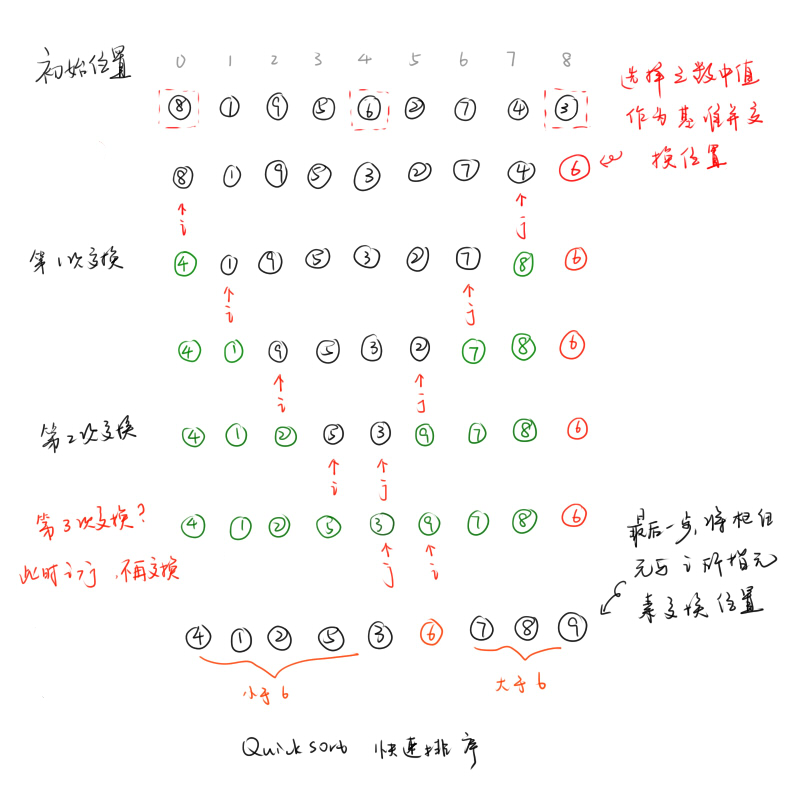 初始位置 0 1 2 3 4 5 6 7 8
8 1 9 5 6 2 7 4 3
选择三数中值
作为基准并交
换位置
8 1 9 5 3 2 7 4 6
i j
第1次交换 4 1 9 5 3 2 7 8 6
i j
4 1 9 5 3 2 7 8 6
i j
第2次交换 4 1 2 5 3 9 7 8 6
i j
第3次交换? 4 1 2 5 3 9 7 8 6
此时i>j,不再交换
j i
最后一步,将枢纽
元与i所指元
素交换位置
4 1 2 5 3 6 7 8 9
小于6 大于6
Quicksort 快速排序